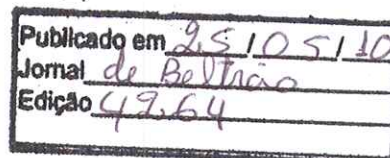 Publicado em 25/05/10
Jornal de Beltrão
Edição 49.64